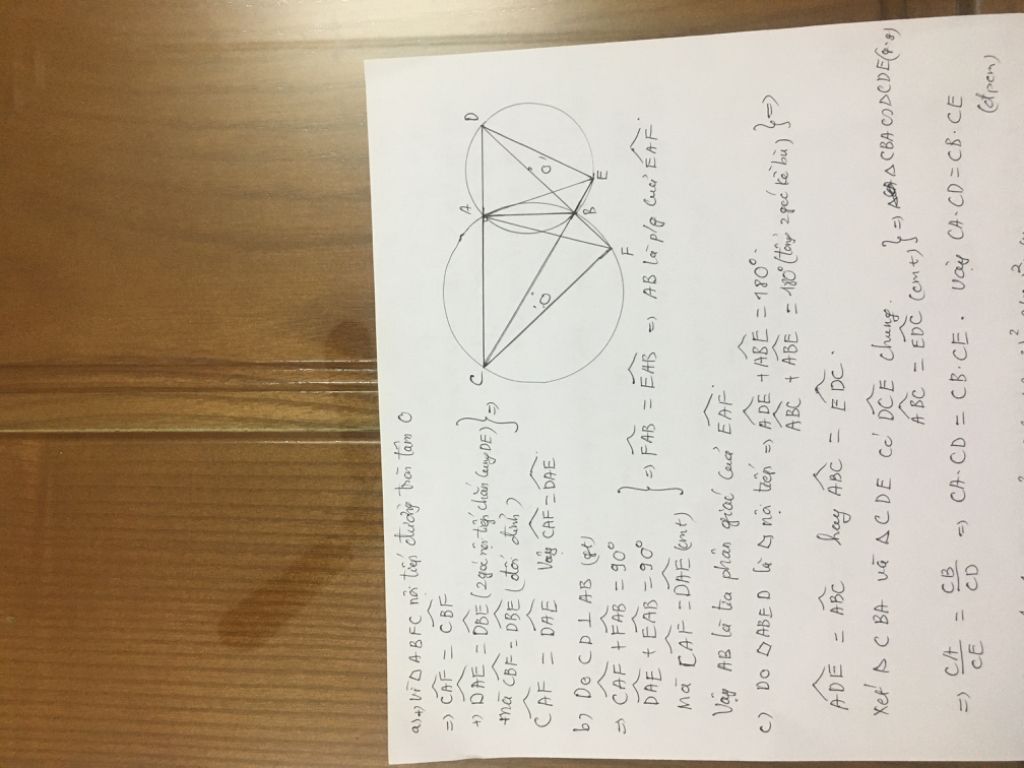 C
A
D
O
O'
B
E
F
a) +) Vì △ ABFC nội tiếp đường tròn tâm O
=> CAF = CBF
+) DAE = DBE (2 góc nội tiếp chắn cung DE) } =>
mà CBF = DBE (đối đỉnh)
CAF = DAE Vậy CAF = DAE.
b) Do CD ⊥ AB (gt)
=> CAF + FAB = 90°
DAE + EAB = 90° } => FAB = EAB => AB là p/g của EAF.
Mà CAF = DAE (cmt)
Vậy AB là tia phân giác của EAF.
c) Do △ABED là △ nội tiếp => ADE + ABE = 180°.
ABC + ABE = 180° (tổng 2 góc kề bù) } =>
ADE = ABC hay ABC = EDC.
Xét △ CBA và △ CDE có DCE chung.
ABC = EDC (cmt) } => △CBA ∽ △CDE (g.g)
=> CA/CE = CB/CD => CA.CD = CB.CE. Vậy CA.CD = CB.CE
(đpcm)